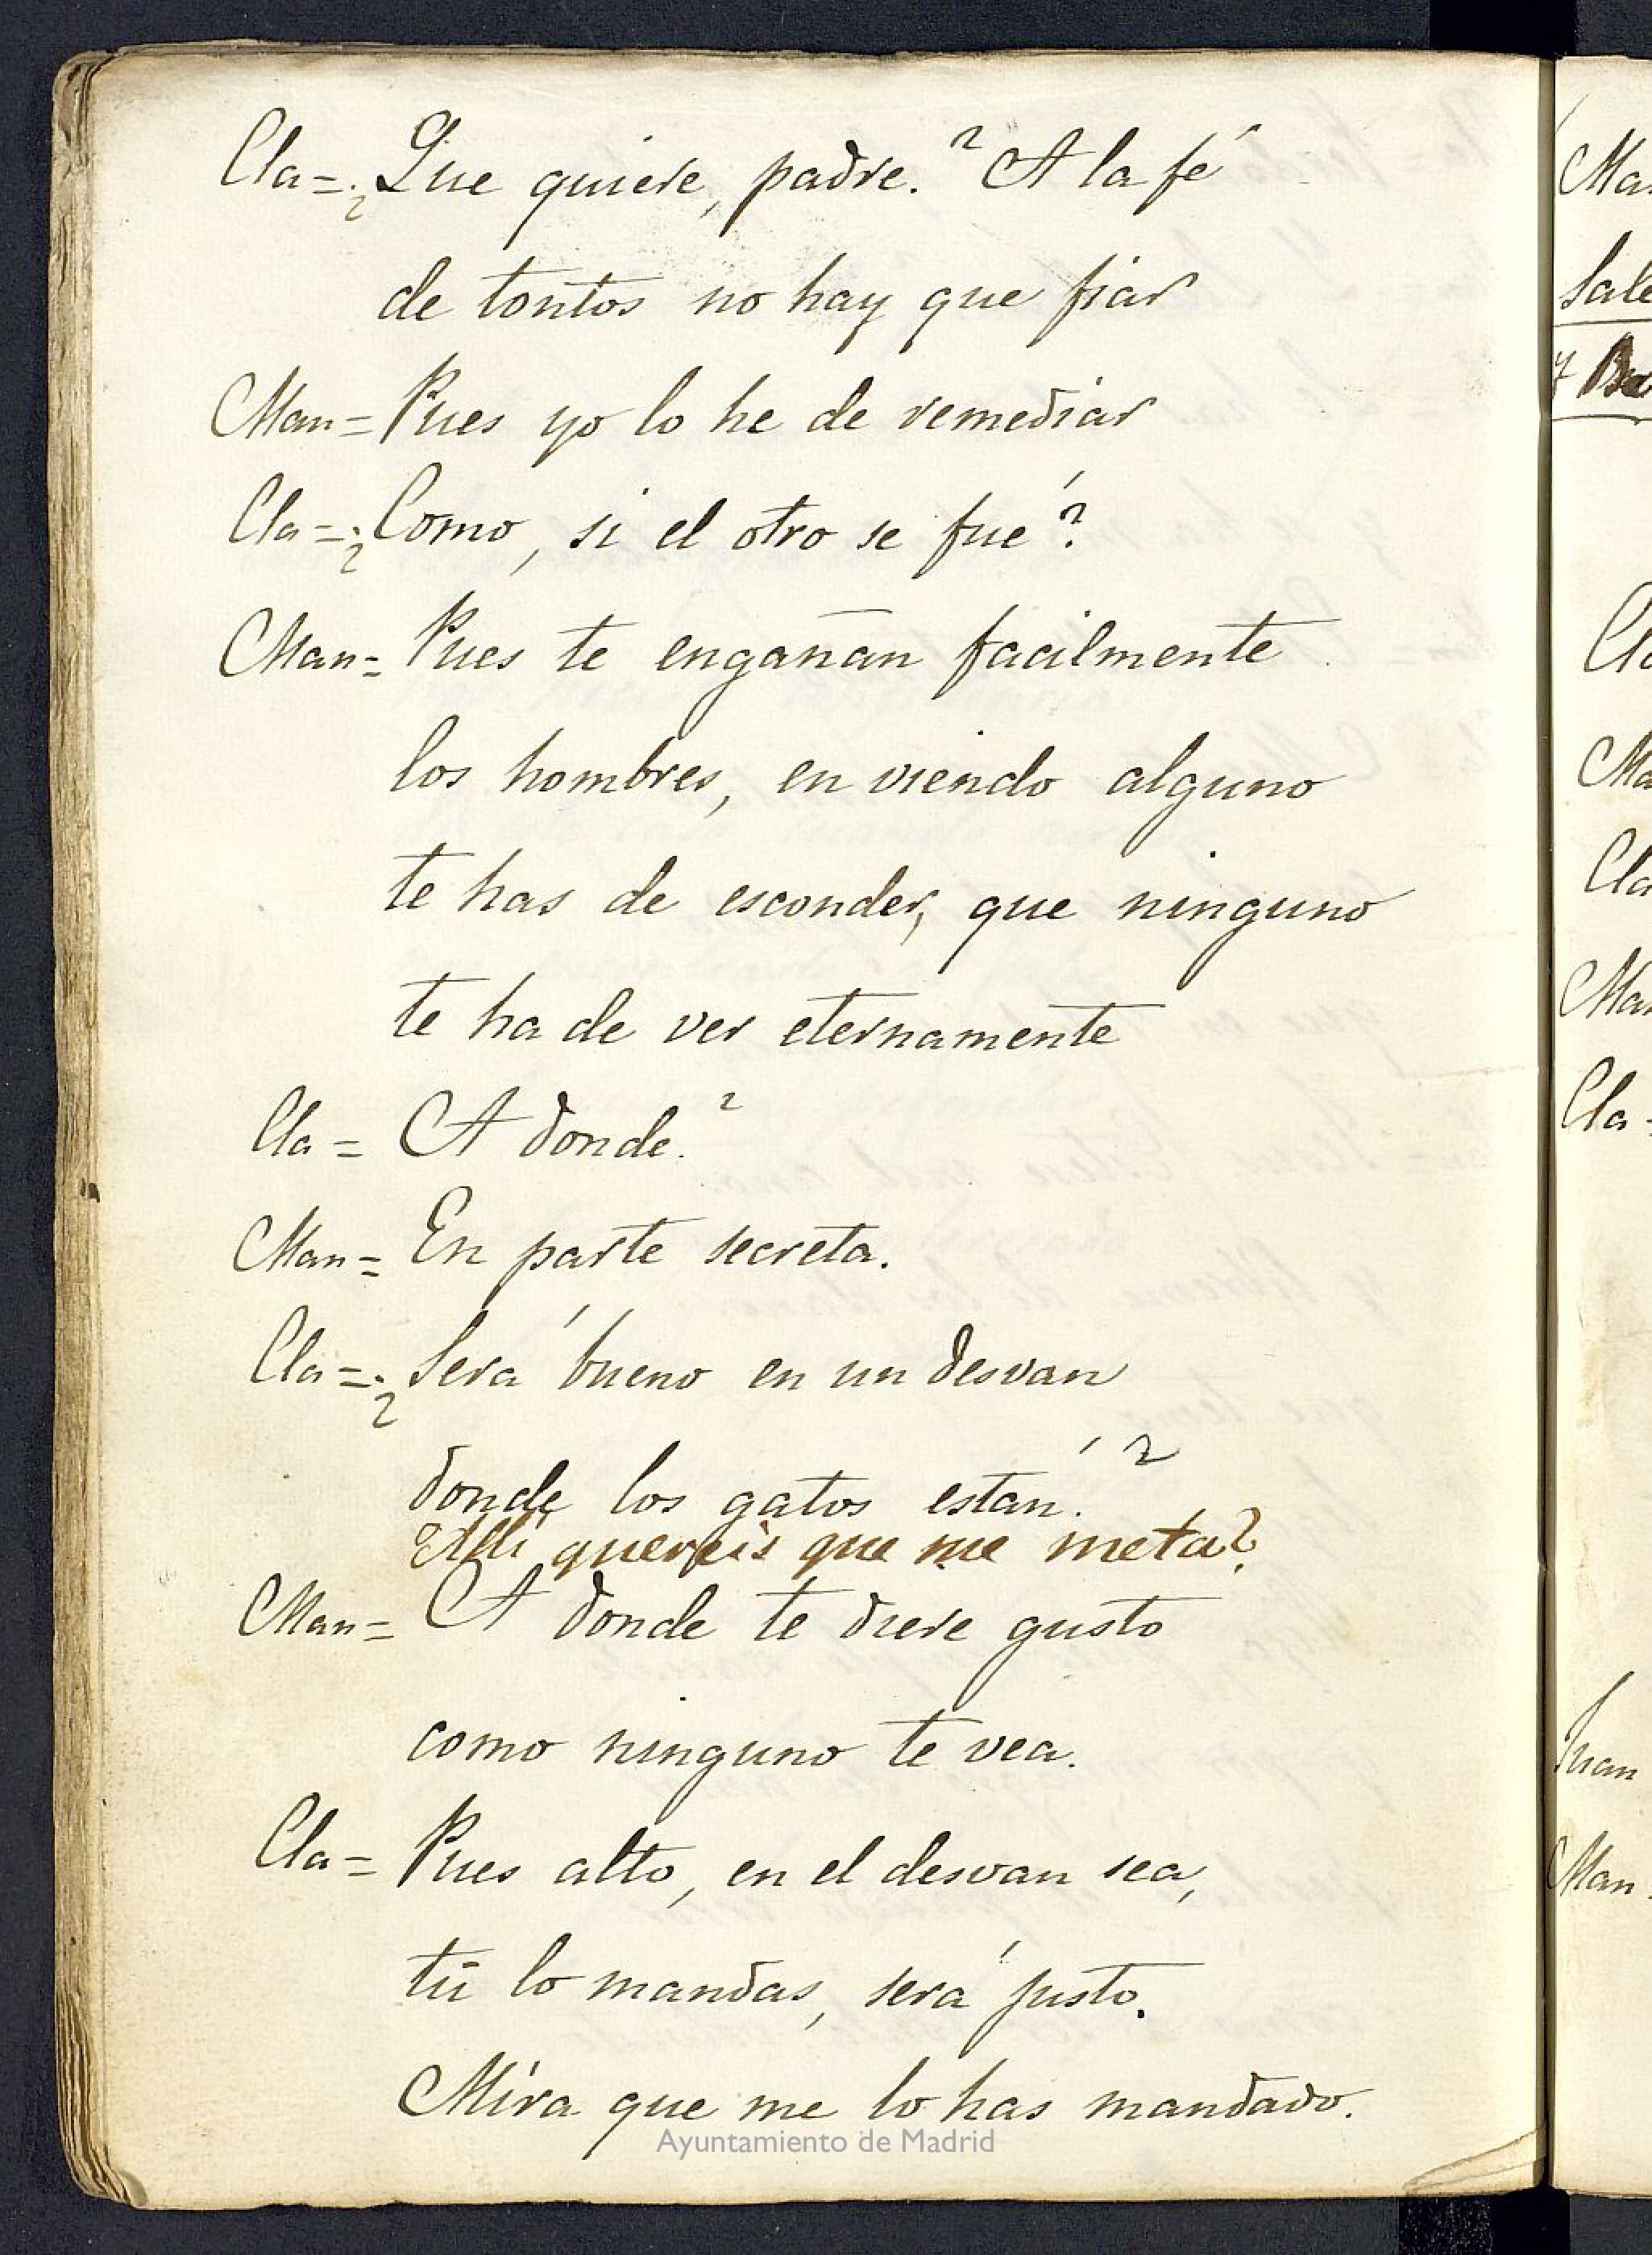 Cla=¿Que quiere, padre.? A la fé
de tontos no hay que fiar
Man= Pues yo lo he de remediar
Cla=¿Como, si el otro se fué?
Man= Pues te engañan facilmente
los hombres, en viendo alguno
te has de esconder, que ninguno
te ha de ver eternamente
Cla= A donde.?
Man= En parte secreta.
Cla=¿Será bueno en un desvan
donde los gatos están.?
Alli quereis que me meta?
Man= A donde te diere gusto
como ninguno te vea.
Cla= Pues alto, en el desvan sea,
tú lo mandas, será justo.
Mira que me lo has mandado.
Ayuntamiento de Madrid
Ma
Sale
Cla
Ma
Cla
Man
Cla
Juan
Man